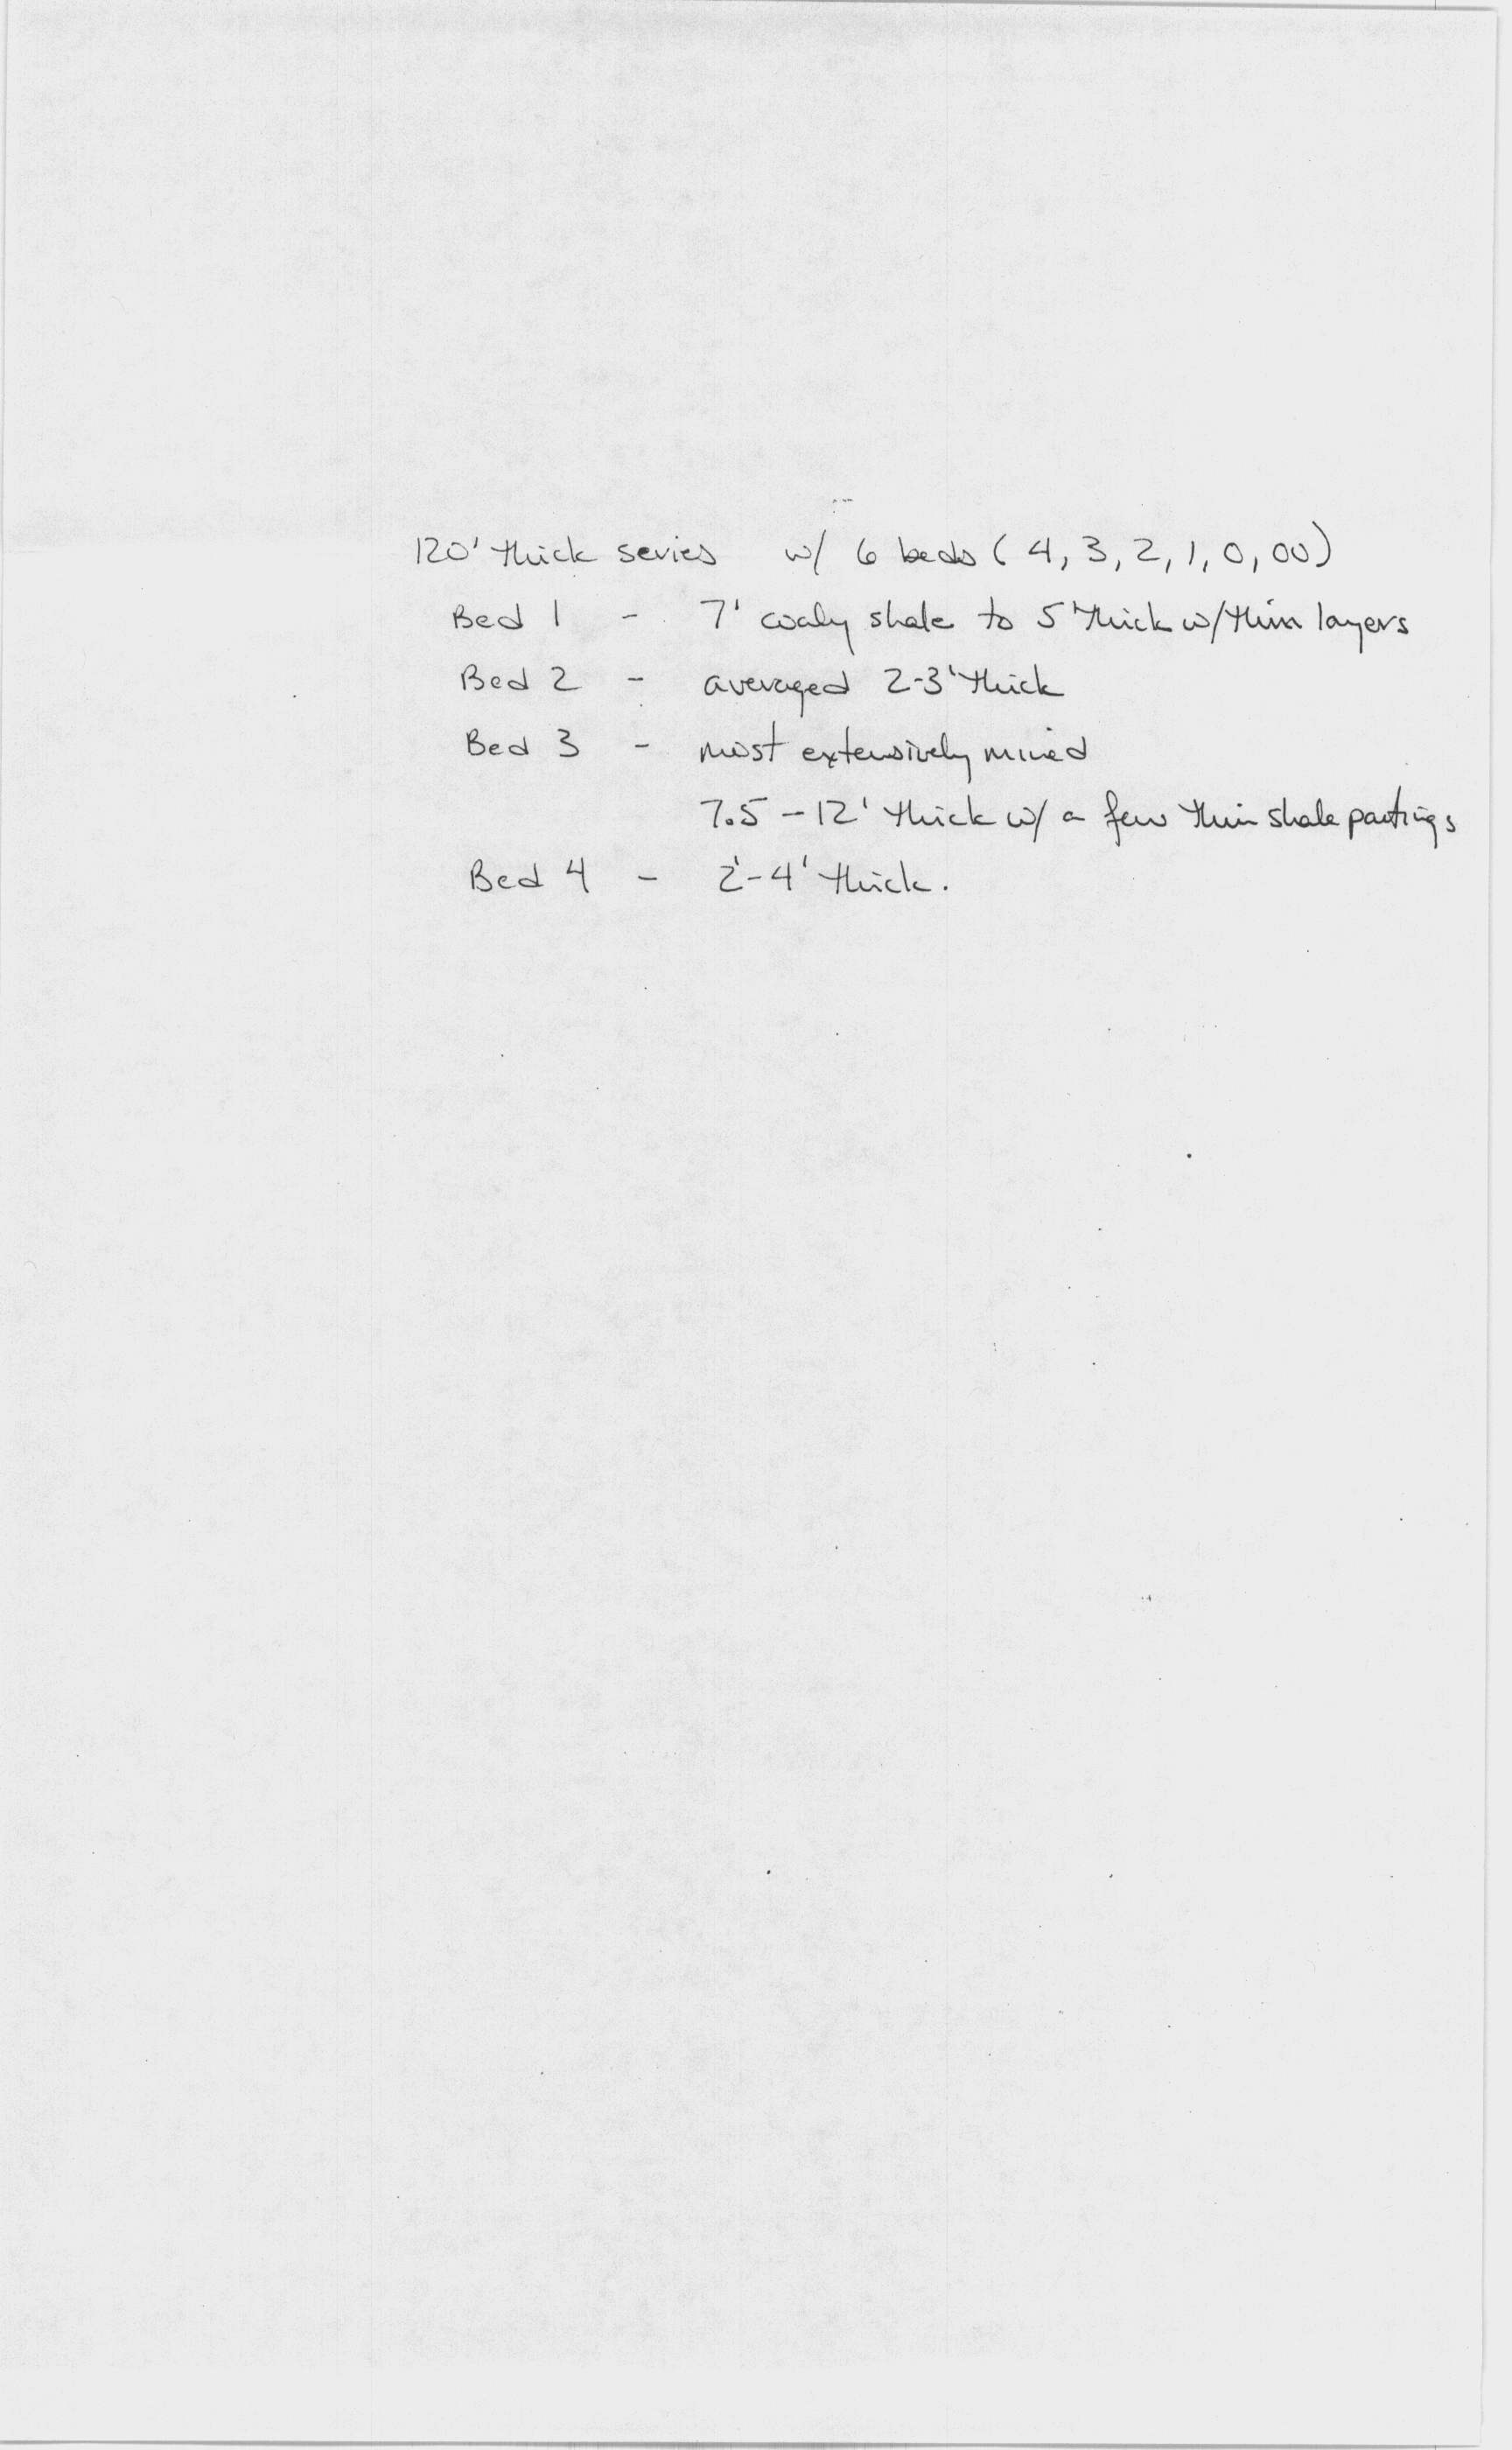 120' thick series w/ 6 beds (4, 3, 2, 1, 0, 00)
Bed 1 - 7' coaly shale to 5' thick w/ thin layers
Bed 2 - averaged 2-3' thick
Bed 3 - most extensively mined
7.5 - 12' thick w/ a few thin shale partings
Bed 4 - 2'-4' thick.